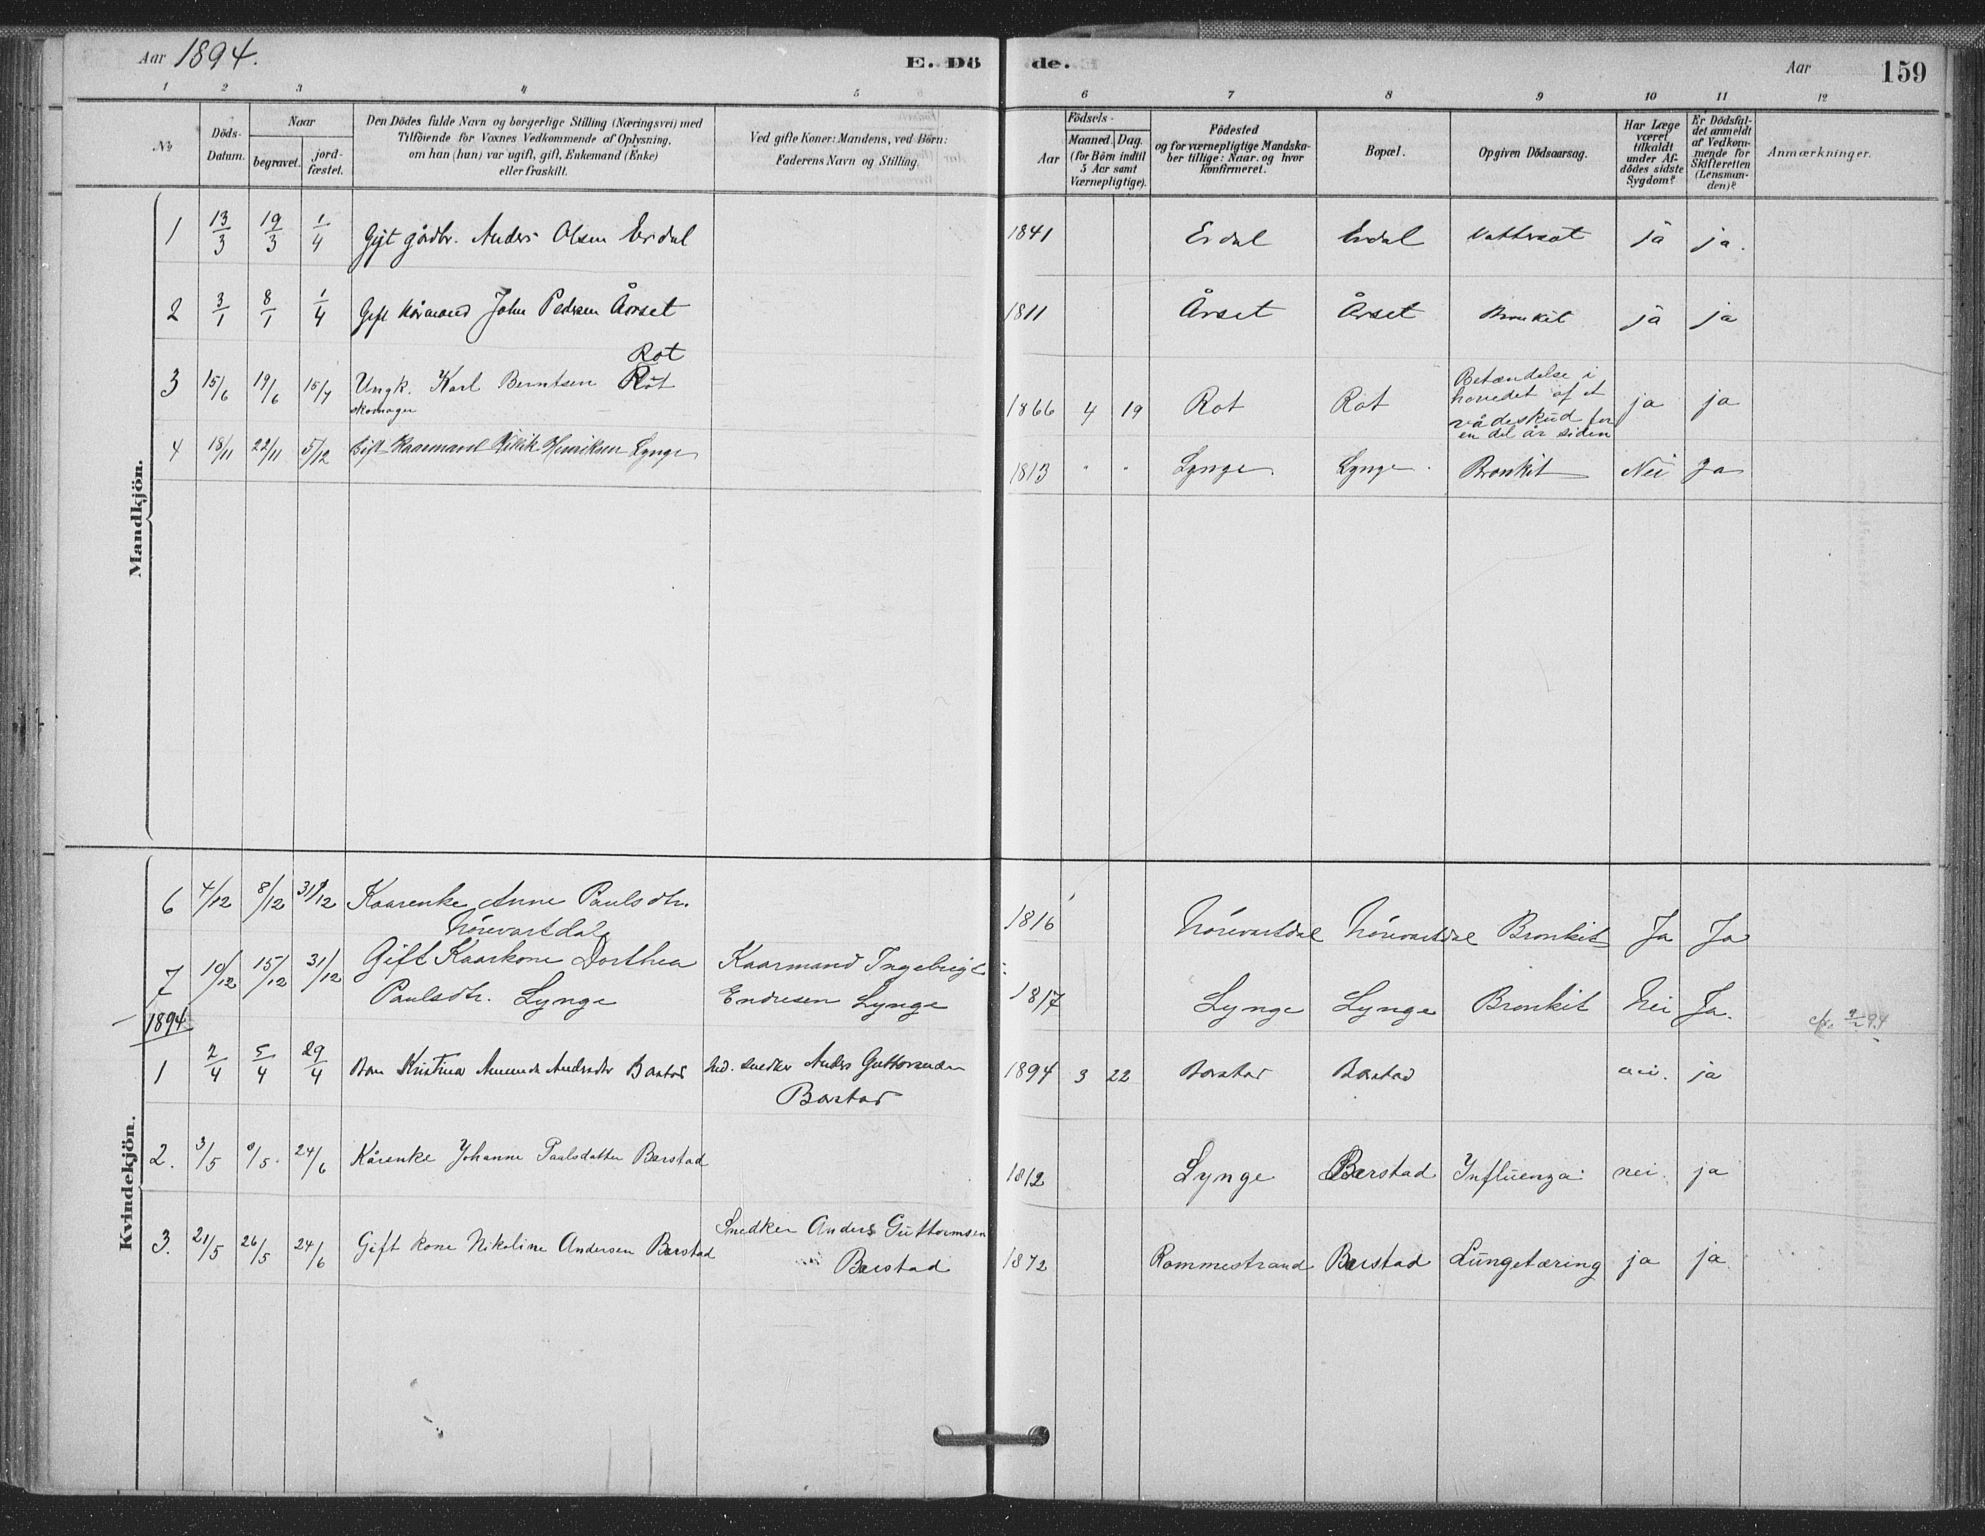 Aar 1894.
E. Dö de.
Aar
159
1 2 3 4 5 6 7 8 9 10 11 12
No
Döds-
Datum.
Naar
begravet.
jord-
fæstet.
Den Dödes fulde Navn og borgerlige Stilling (Næringsvei) med
Tilföiende for Voxnes Vedkommende af Oplysning,
om han (hun) var ugift, gift, Enkemand (Enke)
eller fraskilt.
Ved gifte Koner: Mandens, ved Börn:
Faderens Navn og Stilling.
Födsels-
Aar
Maaned.
Dag.
(for Börn indtil
5 Aar samt
Værnepligtige).
Födested
og for værnepligtige Mandska-
ber tillige: Naar og hvor
konfirmeret.
Bopæl.
Opgiven Dödsaarsag.
Har Læge
været
tilkaldt
under Af-
dödes sidste
Sygdom?
Er Dödsfal-
det anmeldt
af Vedkom-
mende for
Skifteretten
(Lensman-
den)?
Anmærkninger.
Mandkjön.
1 13/3 19/3 1/4 Gift gårdbr. Anders Olsen Erdal 1841 Erdal Erdal Vattersot ja ja.
2 3/1 8/1 1/4 Gift Kårmand John Pedersen Årset 1811 Årset Årset Bronkit ja ja
Rot
3 15/6 19/6 15/7 Ungk. Karl Berntsen Rot
skomager
1866 4 19 Rot Rot
Betændelse i
hovedet af et
vådeskud for
en del år siden
ja ja
4 18/11 22/11 5/12 Gift Kaarmand Henriksen Lynge 1813 " " Lynge Lynge Bronkit Nei Ja
Kvindekjön.
6 4/12 8/12 31/12 Kaarenke Anne Paulsdtr.
Nörevartdal
1816 Nörevartdal Nörevartdal Bronkit Ja Ja
7 10/12 15/12 31/12 Gift Kaarkone Dorthea
Paulsdtr. Lynge
Kaarmand Ingebrigt
Endresen Lynge
1817 Lynge Lynge Bronkit Nei Ja.
1894
1 2/4 5/4 29/4 Barn Kristina Andersdtr Barstad
snedker Anders Guttormsen
Barstad
1894 3 22 Barstad Barstad nei. ja
2. 3/5 /5 24/6 Kårenke Johanne Paulsdatter Barstad 1812 Lynge Barstad Influenza nei. ja
3. 21/5 26/5 24/6 Gift kone Nikoline Andersen Barstad
Snedker Anders Guttormsen
Barstad
1872 Rommestrand Barstad Lungetæring ja ja